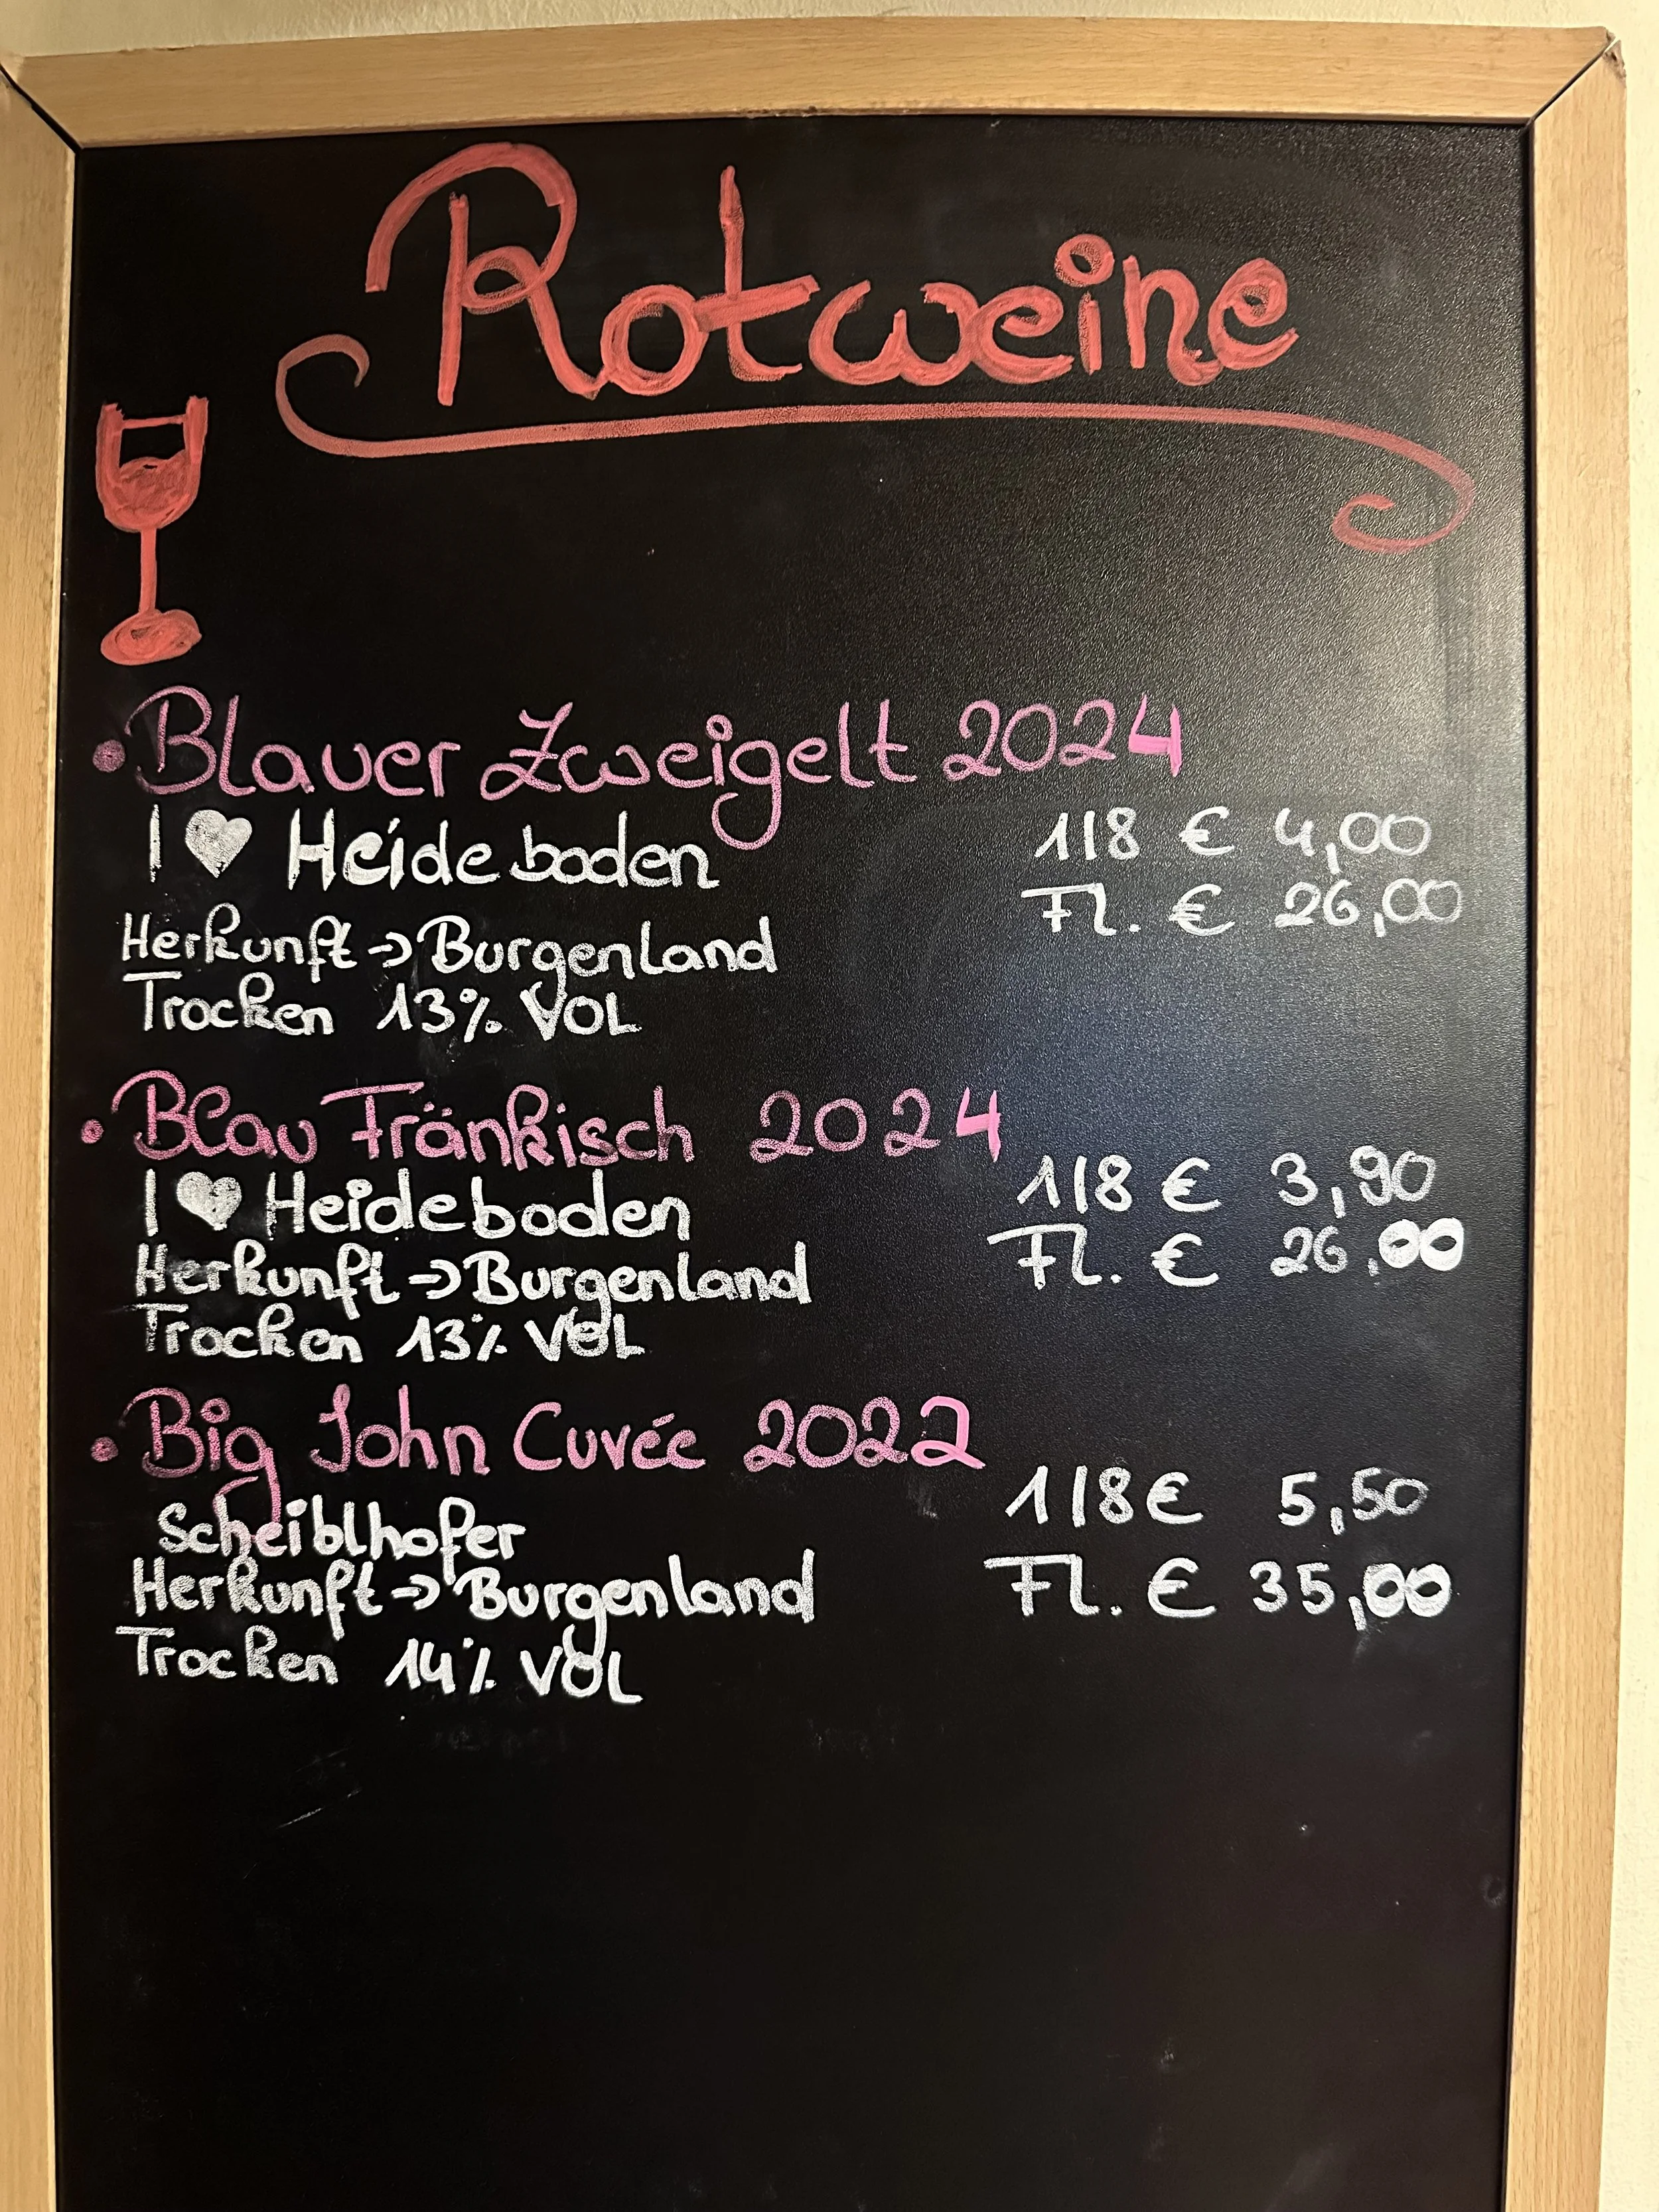 Rotweine
• Blauer Zweigelt 2024
I ♥ Heideboden 1/8 € 4,00
Fl. € 26,00
Herkunft → Burgenland
Trocken 13% VOL
• Blau Fränkisch 2024
I ♥ Heideboden 1/8 € 3,90
Fl. € 26,00
Herkunft → Burgenland
Trocken 13% VOL
• Big John Cuvée 2022
1/8 € 5,50
Scheiblhofer
Herkunft → Burgenland Fl. € 35,00
Trocken 14% VOL